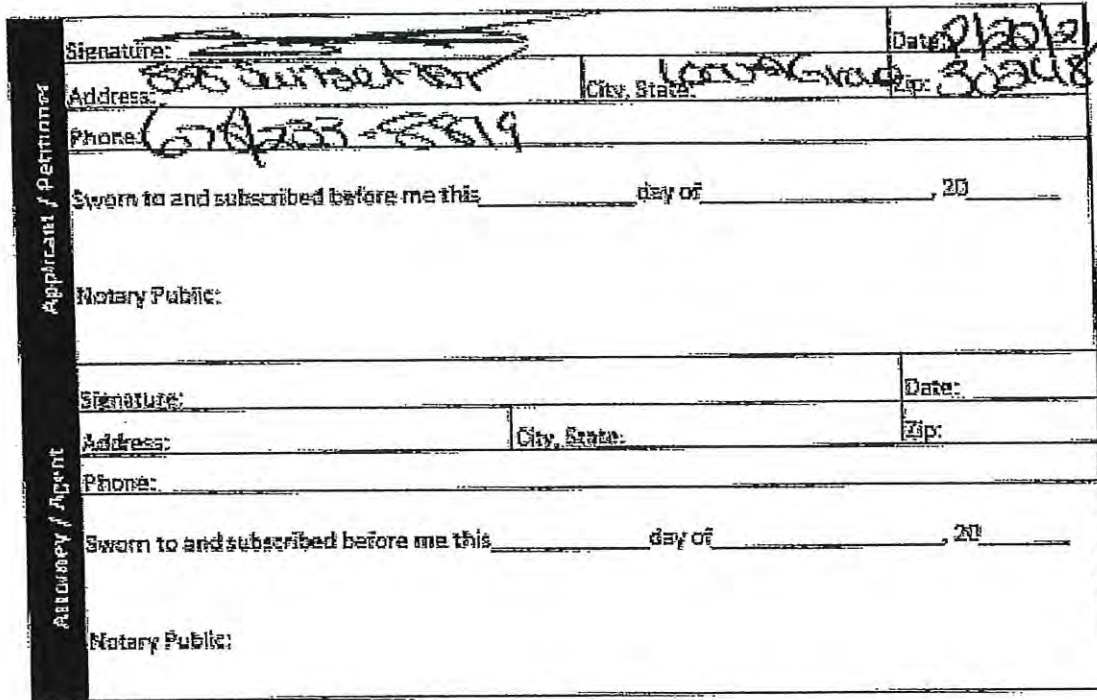 Applicant / Petitioner
Signature: Date: 2/20/21
Address: Sunset Dr City, State: Zip: 30248
Phone:
Sworn to and subscribed before me this__________day of______________, 20______
Notary Public:
Attorney / Agent
Signature: Date:
Address: City, State: Zip:
Phone:
Sworn to and subscribed before me this__________day of______________, 20______
Notary Public: